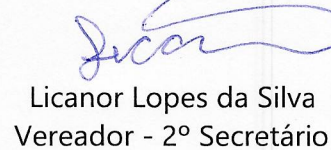 Licanor Lopes da Silva
Vereador - 2º Secretário